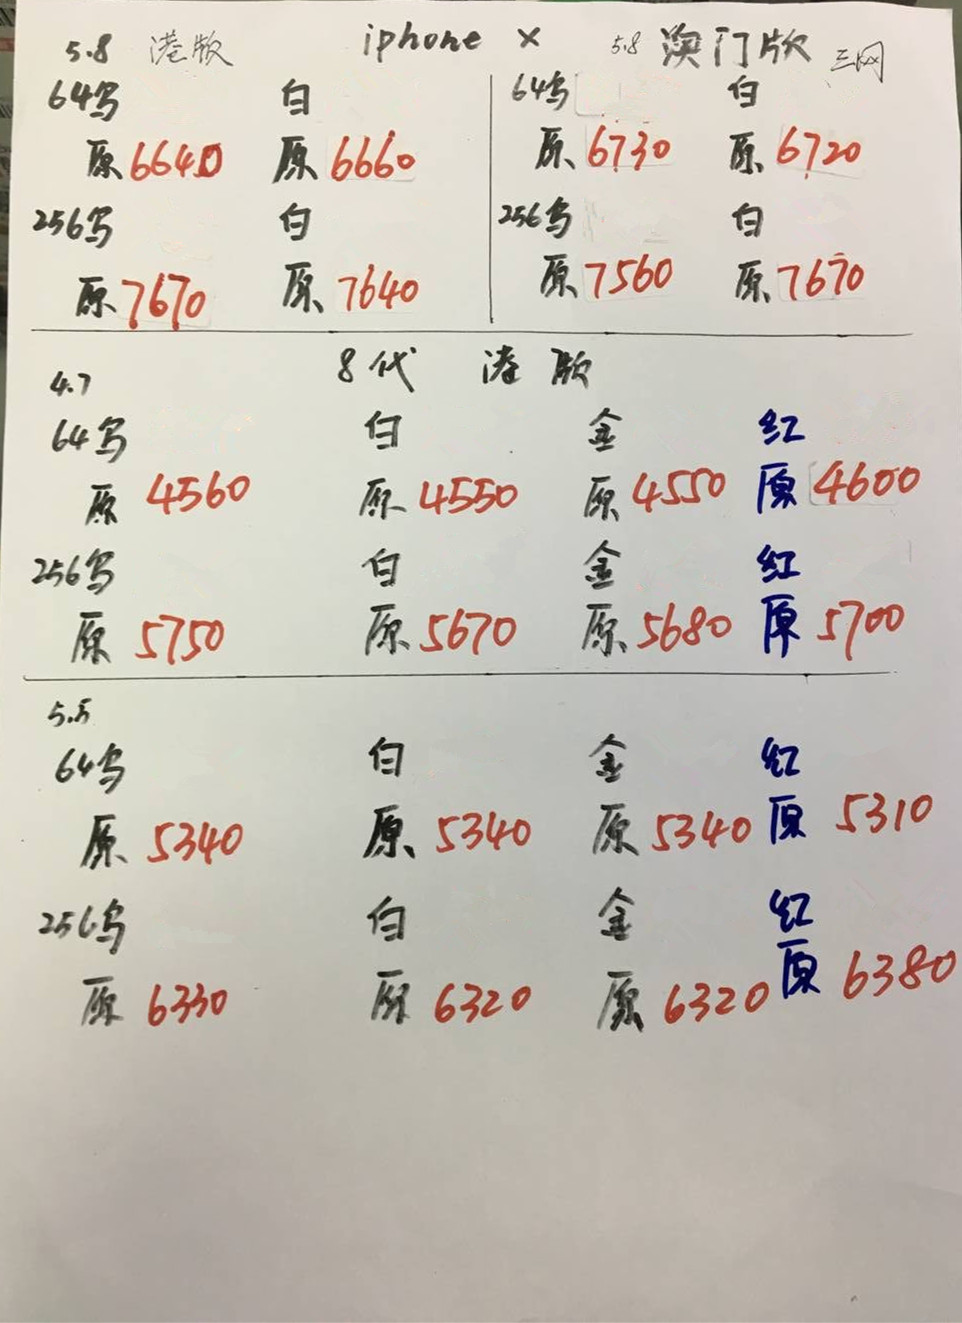 iphone X
5.8 港版
64乌 白
原 6640 原 6660
256乌 白
原 7670 原 7640
5.8 澳门版 三网
64乌 白
原 6730 原 6720
256乌 白
原 7560 原 7670
8代 港版
4.7
64乌 白 金 红
原 4560 原 4550 原 4550 原 4600
256乌 白 金 红
原 5750 原 5670 原 5680 原 5700
5.5
64乌 白 金 红
原 5340 原 5340 原 5340 原 5310
256乌 白 金 红
原 6330 原 6320 原 6320 原 6380